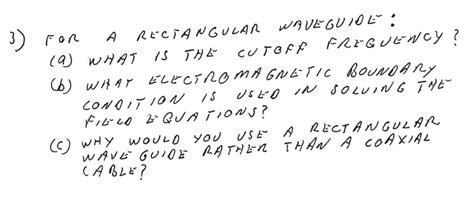 3) FOR A RECTANGULAR WAVEGUIDE:
(a) WHAT IS THE CUTOFF FREQUENCY?
(b) WHAT ELECTROMAGNETIC BOUNDARY
CONDITION IS USED IN SOLVING THE
FIELD EQUATIONS?
(c) WHY WOULD YOU USE A RECTANGULAR
WAVE GUIDE RATHER THAN A COAXIAL
CABLE?